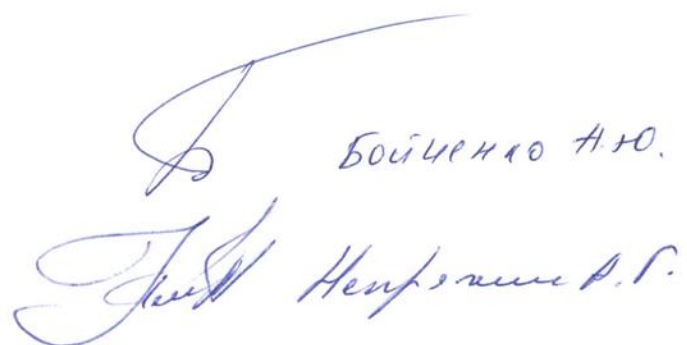 Бойченко Н.Ю.
Непряхин А.Г.